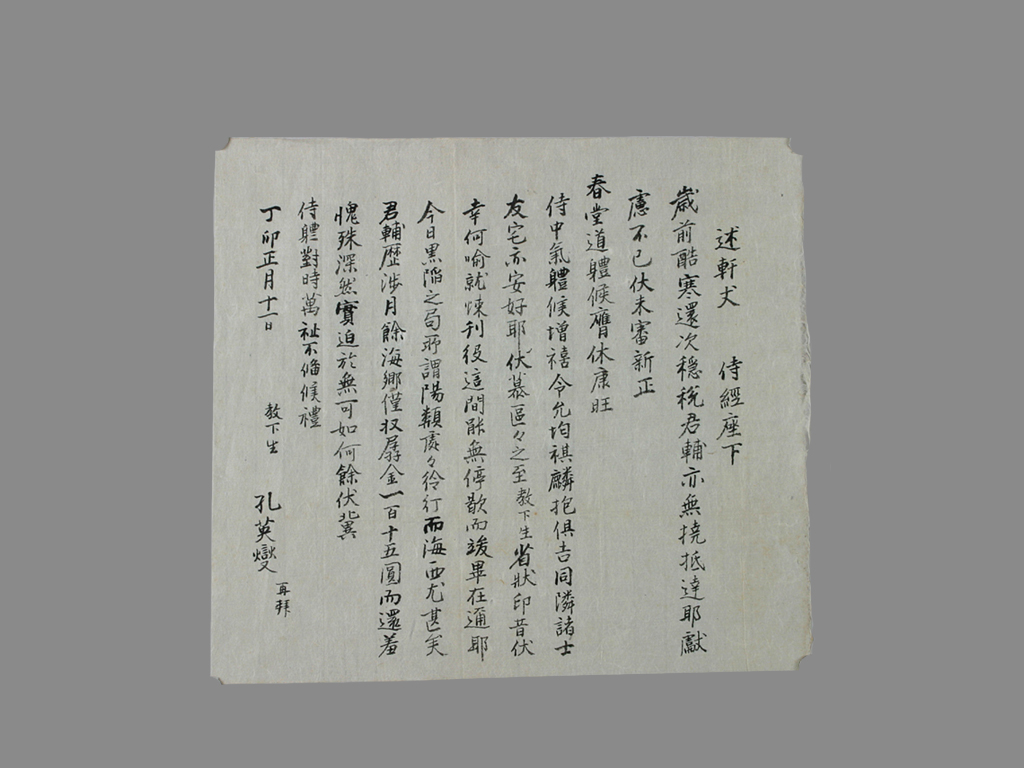 述軒丈 侍經座下
歲前酷寒還次穩稅君輔亦無撓抵達耶獻
慮不已伏未審新正
春堂道體候膺休康旺
侍中氣體候增禧令允均祺麟抱俱吉同隣諸士
友宅亦安好耶伏慕區々之至教下生省狀印昔伏
幸何喻就悚刊役這間能無停歇而竣畢在邇耶
今日黑陷之局所謂陽類處々行而海西尤甚矣
君輔歷涉月餘海鄉僅收孱金一百十五圓而還羞
愧殊深然實迫於無可如何餘伏冀
侍體對時萬祉不備候禮
丁卯正月十一日 教下生 孔英燮 再拜